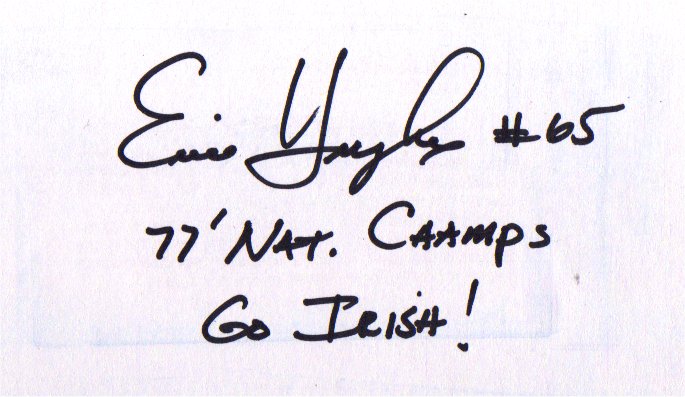 Ernie Hughes #65
77' NAT. CHAMPS
GO IRISH!